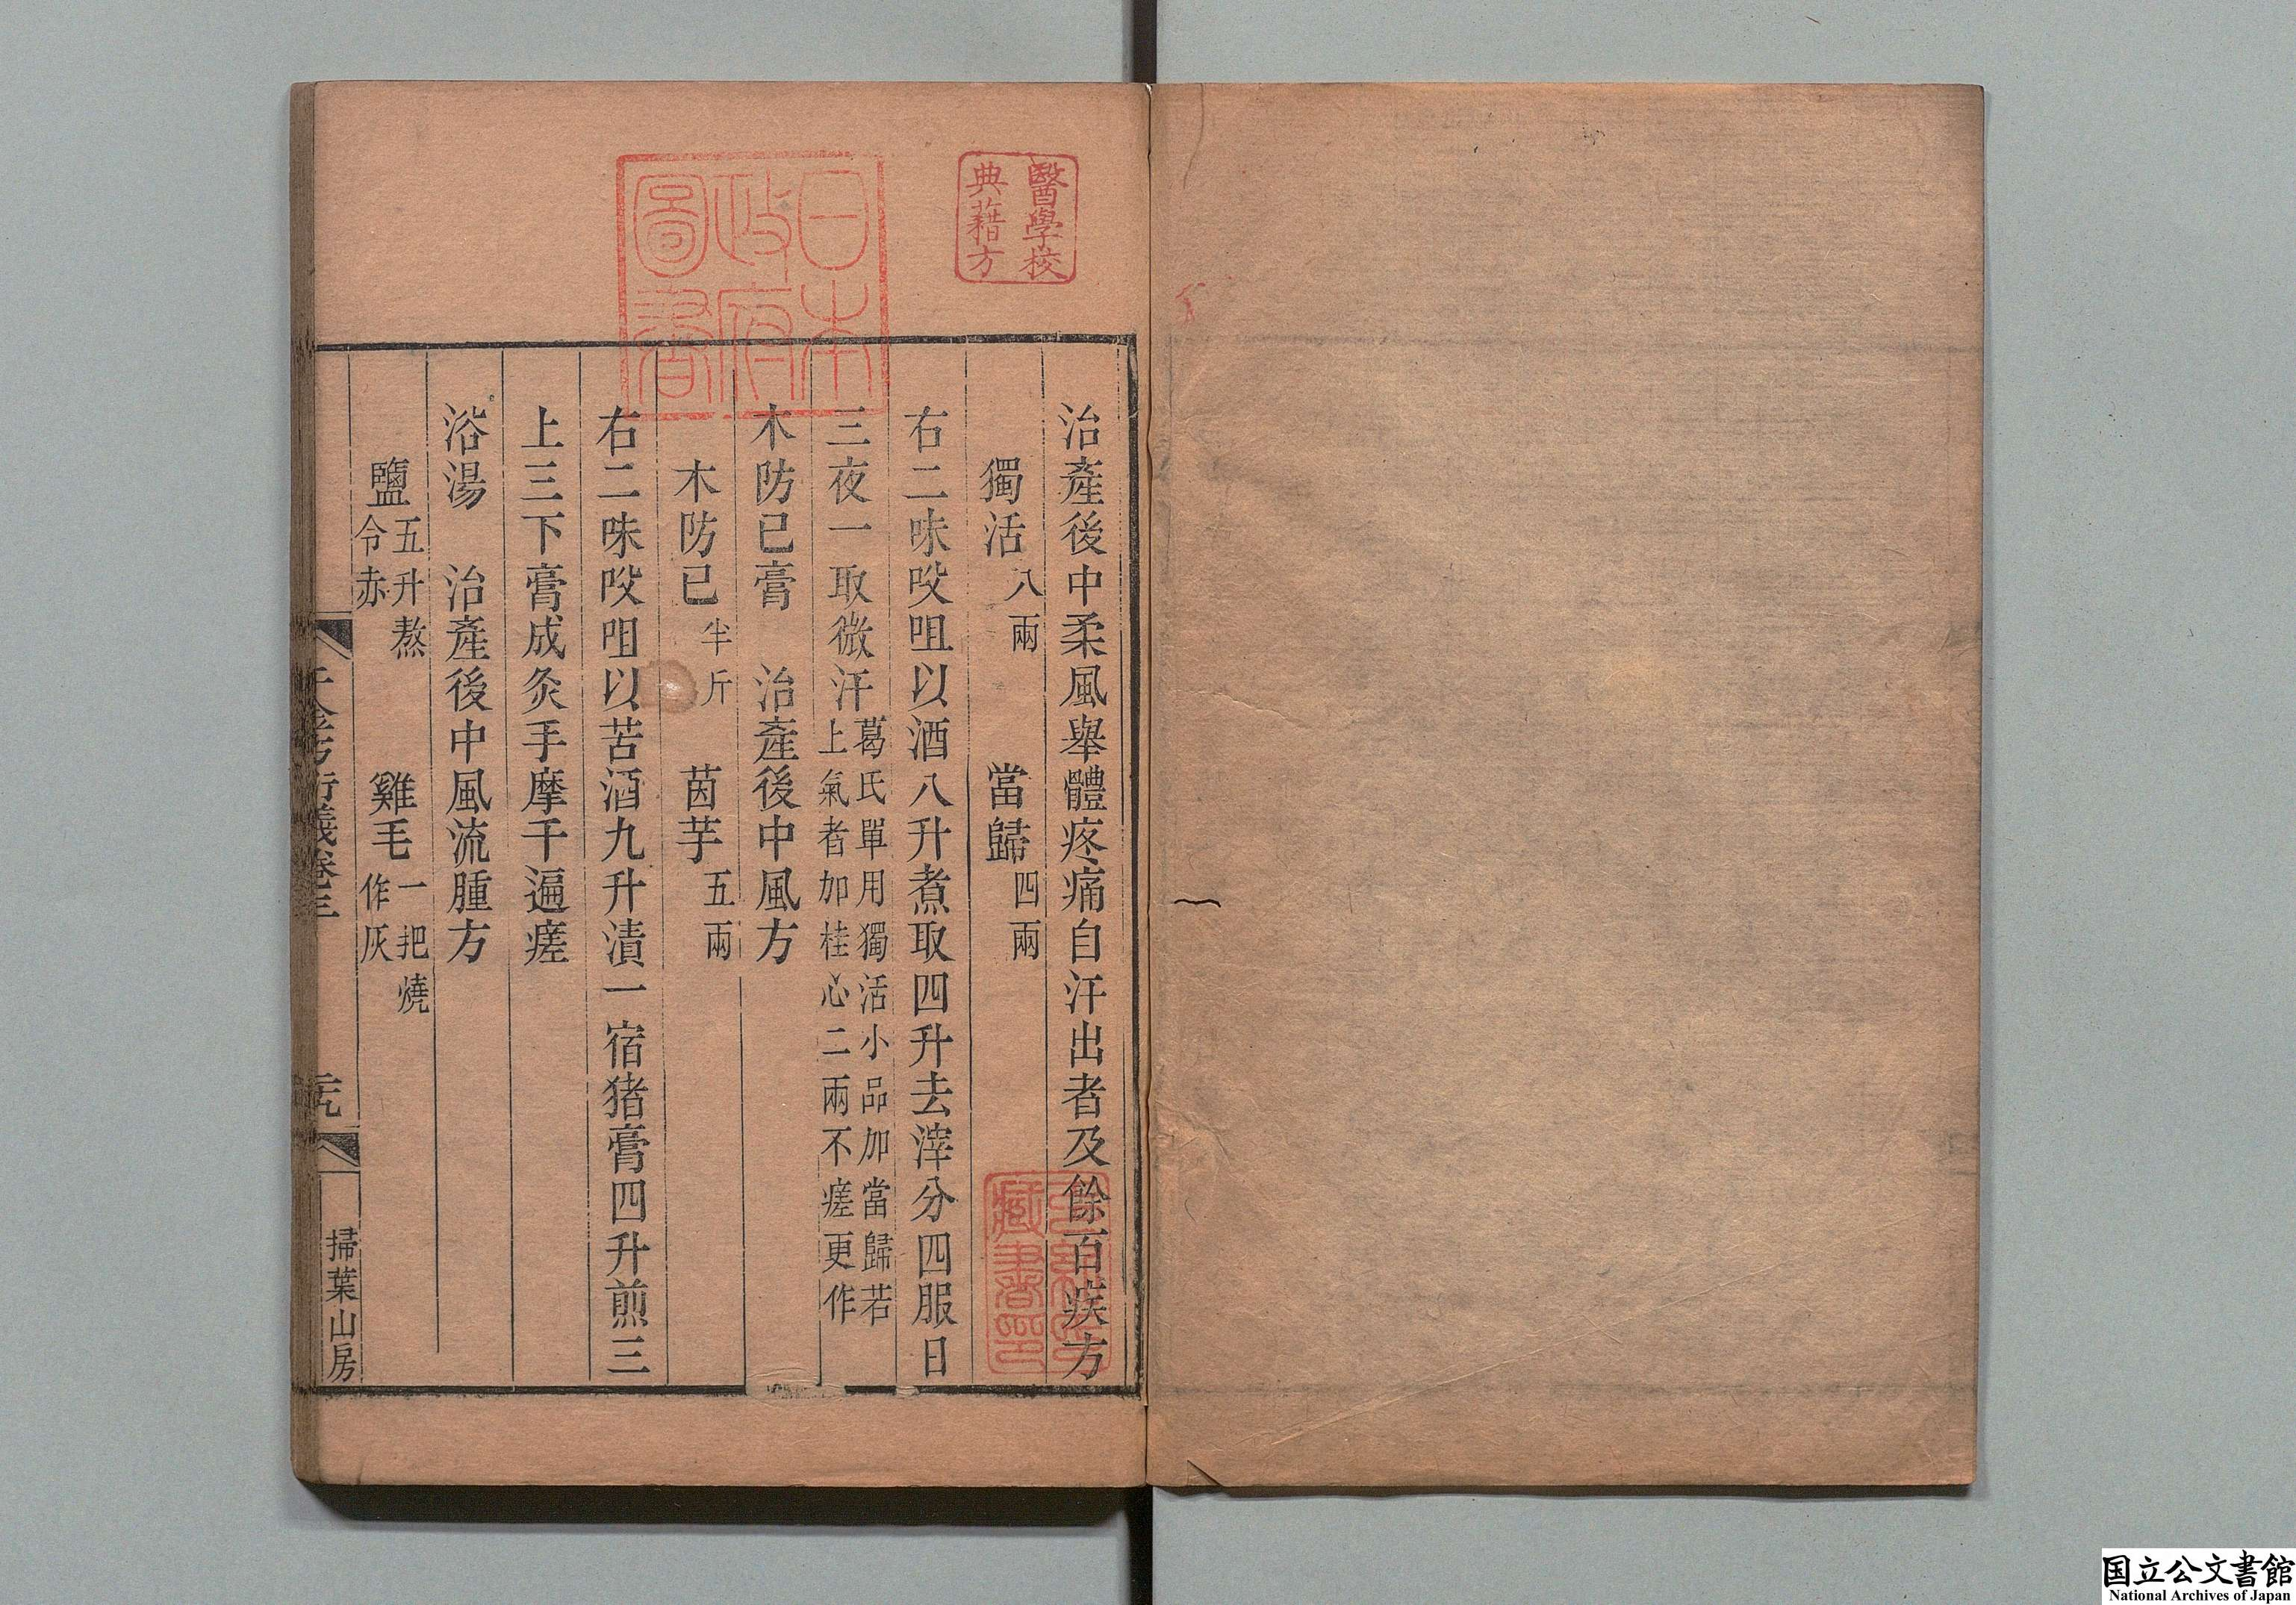 醫學校
典藉方
日本
政府
圖書
治產後中柔風舉體疼痛自汗出者及餘百疾方
獨活八兩 當歸四兩
右二味㕮咀以酒八升煮取四升去滓分四服日
三夜一取微汗葛氏單用獨活小品加當歸若
上氣者加桂心二兩不瘥更作
木防已膏 治產後中風方
木防已半斤 茵芋五兩
右二味㕮咀以苦酒九升漬一宿猪膏四升煎三
上三下膏成灸手摩千遍瘥
浴湯 治產後中風流腫方
鹽五升熬
令赤 雞毛一把燒
作灰
千金方衍義卷三
掃葉山房
藏書
国立公文書館
National Archives of Japan